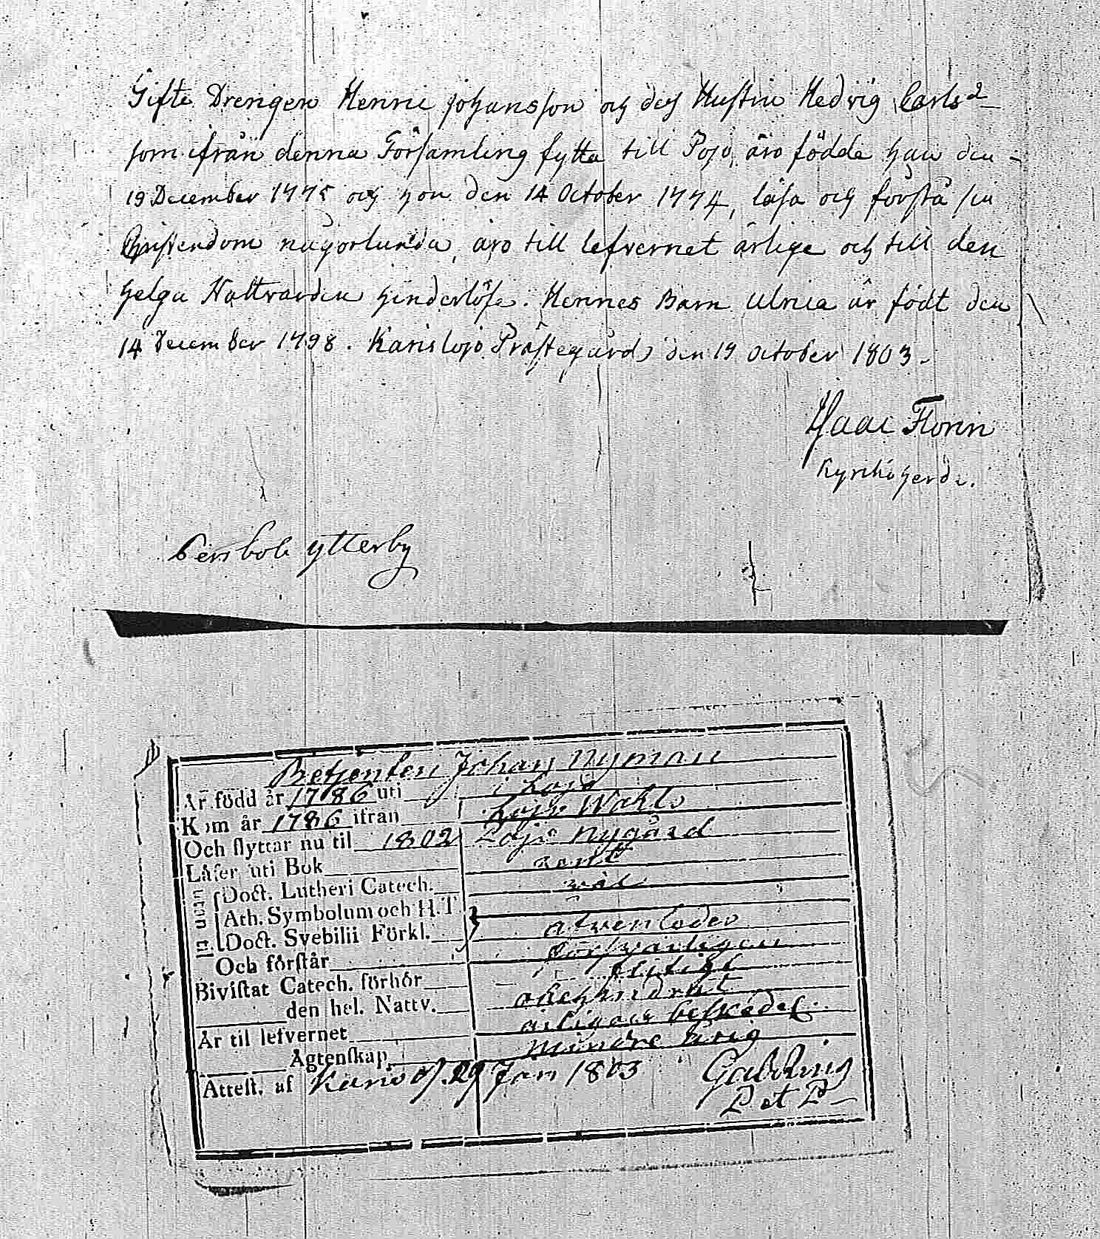 Gifte Drengen Henric Johansson och dess Hustru Hedvig Carlsd
som ifrån denna Församling flytta till Pojo, äro födde han den
19 December 1775 och hon den 14 October 1774, läsa och förstå sin
Christendom någorlunda, äro till lefvernet ärlige och till den
helga Nattvarden hinderlöse. Hennes Barn Ulrica är födt den
14 December 1798. Karislojo Prästegård den 19 October 1803.
Isaac Florin
Kyrkoherde.
ytterby
Betjenten Johan Nyman
Är född år 1786 uti Lojo
Kom år 1786 ifrån Lojo
Och flyttar nu til 1802 Lojo Nygård
Läser uti Bok rent
Doct. Lutheri Catech. väl
Ath. Symbolum och H.T.
Doct. Svebilii Förkl.
Och förstår försvarligen
Bivistat Catech. förhör flitigt
den hel. Nattv. obehindrat
Är til lefvernet
Ägtenskap mindre årig
Attest. af Karis d. 29 Jan 1803